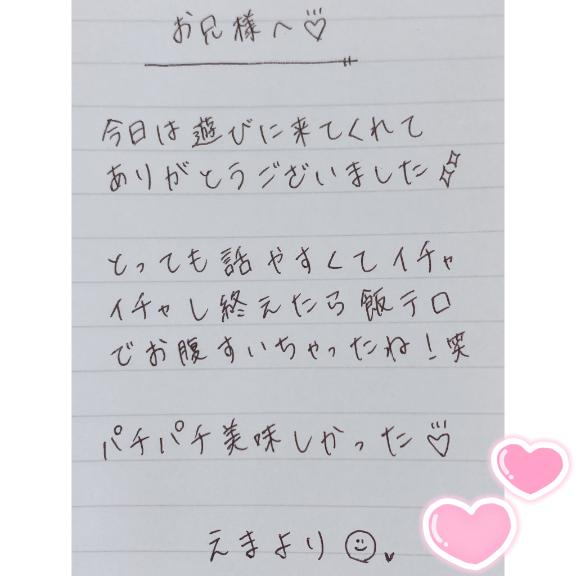 お兄様へ♡
今日は遊びに来てくれて
ありがとうございました
とっても話やすくてイチャ
イチャし終えたら飯テロ
でお腹すいちゃったね！笑
パチパチ美味しかった♡
えまより